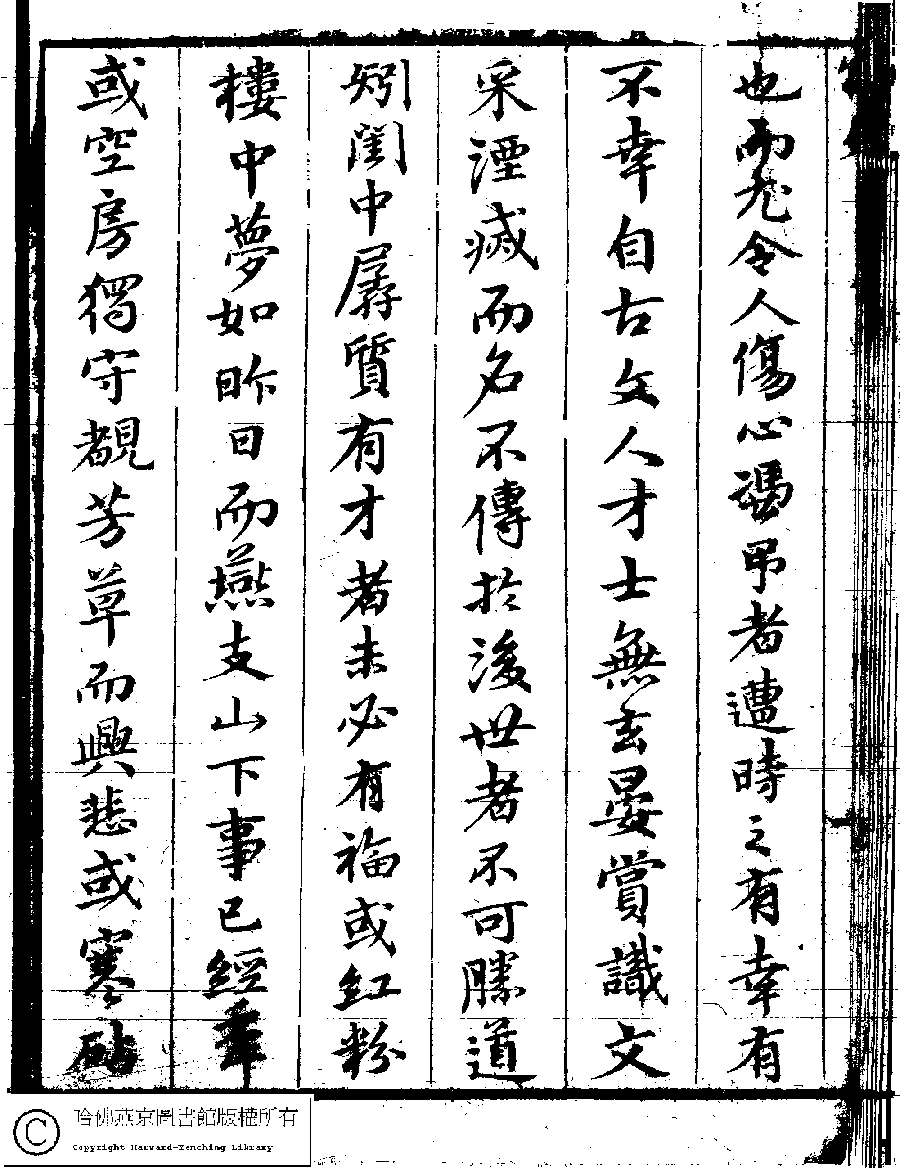 也而尤令人傷心憑弔者遭時之有幸有
不幸自古文人才士無玄晏賞識文
采湮滅而名不傳於後世者不可勝道
矧閨中孱質有才者未必有福或紅粉
樓中夢如昨日而燕支山下事已經年
或空房獨守覩芳草而興悲或寒砧
哈佛燕京圖書館版權所有
Copyright Harvard-Yenching Library